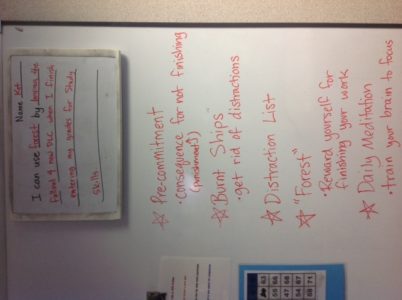 Name Kat
I can use Forest by buying the
Fallout 4 new DLC when I finish
entering my grades for Study
Skills
☆ Pre-commitment
· Consequence for not finishing
(punishment!)
☆ "Burnt Ships"
· get rid of distractions
☆ Distraction List
☆ "Forest"
· Reward yourself for
finishing your work
☆ Daily Meditation
· train your brain to focus